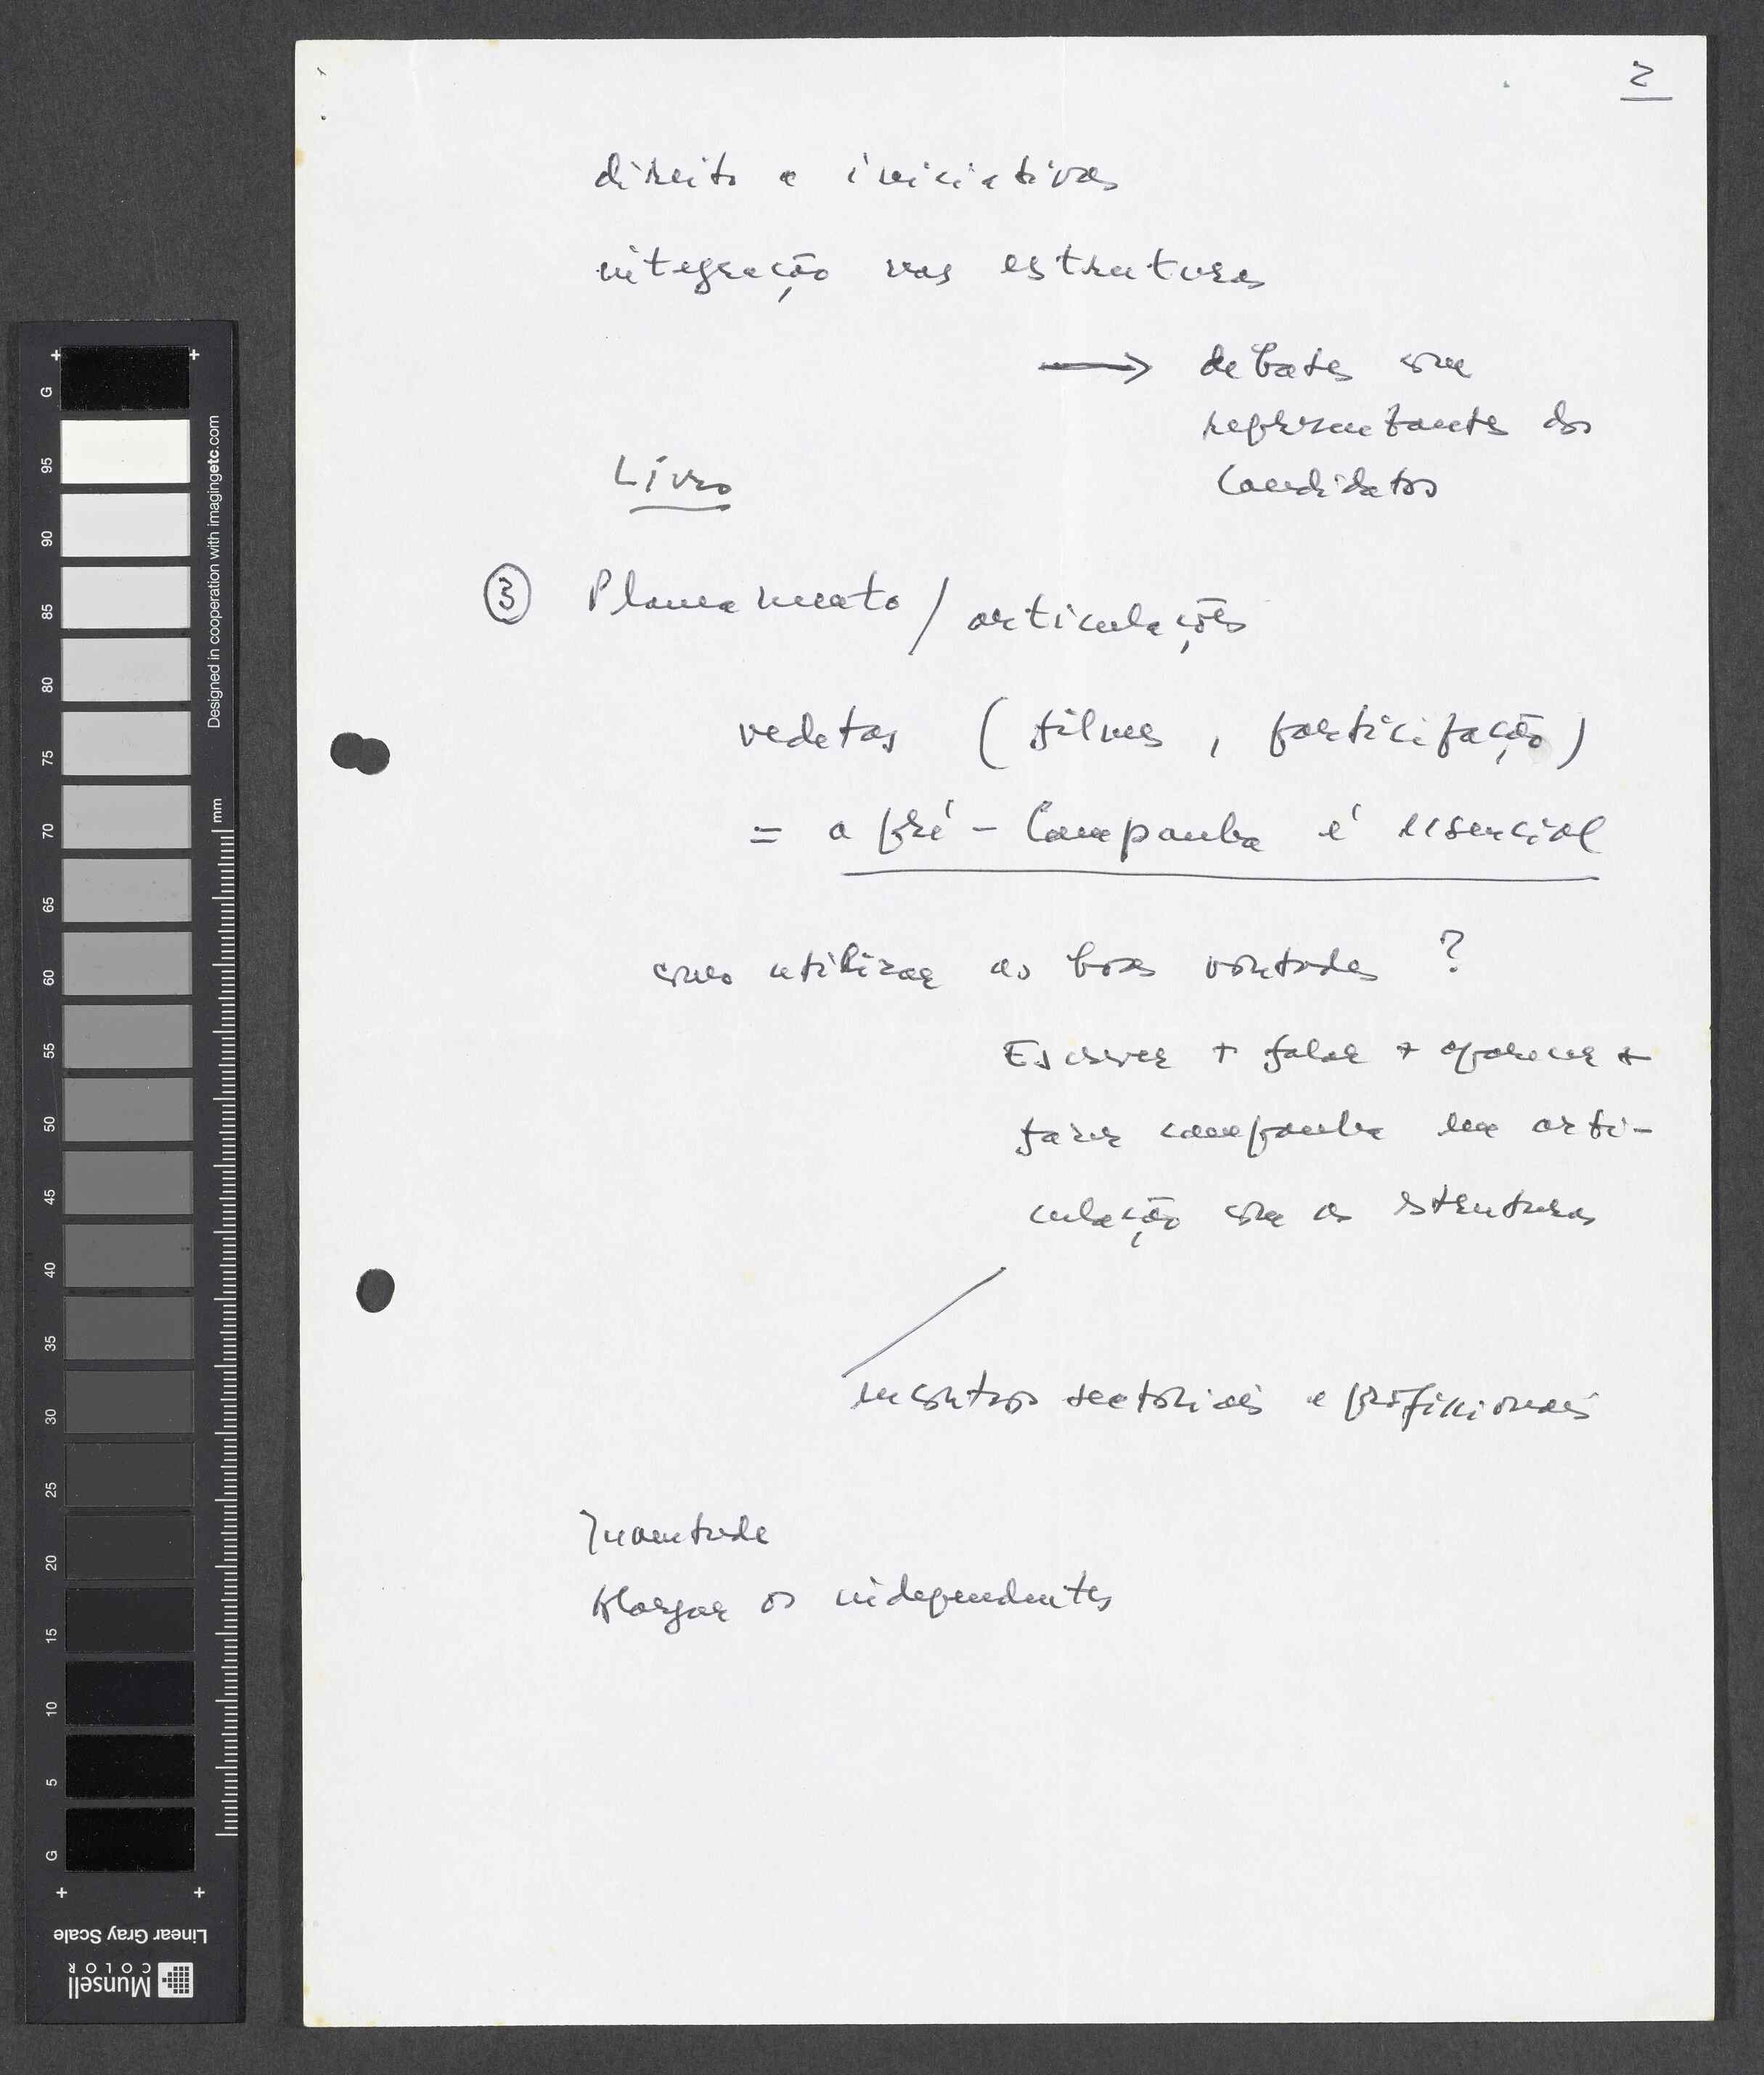 2
direito a iniciativas
integração nas estruturas
→ debates com
representantes dos
candidatos
Livro
③ Planeamento / articulações
vedetas (filmes, participação)
= a pré-Campanha é essencial
como utilizar as boas vontades ?
Escrever + falar + aparecer +
fazer campanha em arti-
culação com as estruturas
encontros sectoriais e profissionais
Juventude
Alargar os independentes
G
95
90
85
80
75
70
65
60
55
50
45
40
35
30
25
20
15
10
5
G
mm
Designed in cooperation with imagingetc.com
Linear Gray Scale
Munsell
COLOR